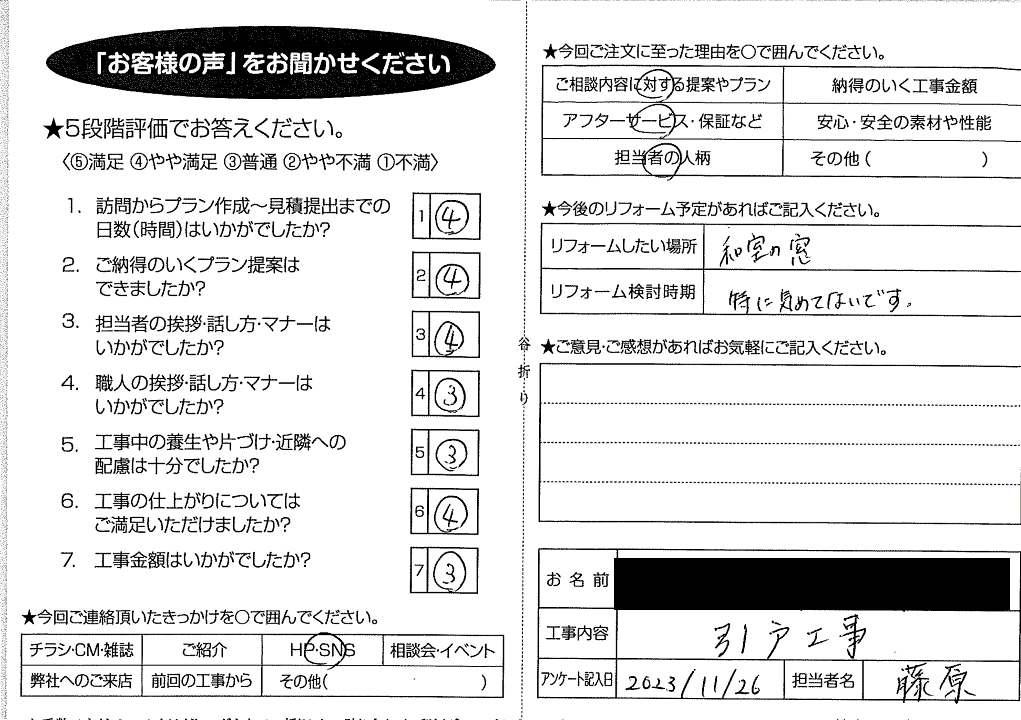 「お客様の声」をお聞かせください
★5段階評価でお答えください。
〈⑤満足 ④やや満足 ③普通 ②やや不満 ①不満〉
1. 訪問からプラン作成～見積提出までの
日数(時間)はいかがでしたか?
1 ④
2. ご納得のいくプラン提案は
できましたか?
2 ④
3. 担当者の挨拶・話し方・マナーは
いかがでしたか?
3 ④
4. 職人の挨拶・話し方・マナーは
いかがでしたか?
4 ③
5. 工事中の養生や片づけ・近隣への
配慮は十分でしたか?
5 ③
6. 工事の仕上がりについては
ご満足いただけましたか?
6 ④
7. 工事金額はいかがでしたか?
7 ③
★今回ご連絡頂いたきっかけを○で囲んでください。
チラシ・CM・雑誌 ご紹介 HP・SNS 相談会・イベント
弊社へのご来店 前回の工事から その他( )
谷折り
★今回ご注文に至った理由を○で囲んでください。
ご相談内容に対する提案やプラン 納得のいく工事金額
アフターサービス・保証など 安心・安全の素材や性能
担当者の人柄 その他( )
★今後のリフォーム予定があればご記入ください。
リフォームしたい場所 和室の窓
リフォーム検討時期 特に決めてないです。
★ご意見・ご感想があればお気軽にご記入ください。
お名前
工事内容 引戸工事
アンケート記入日 2023/11/26 担当者名 藤原